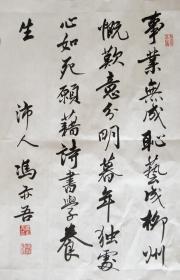 事業無成恥藝成柳州
慨歎意分明暮年獨處
心如死願藉詩書學養
生
沛人馮亦吾